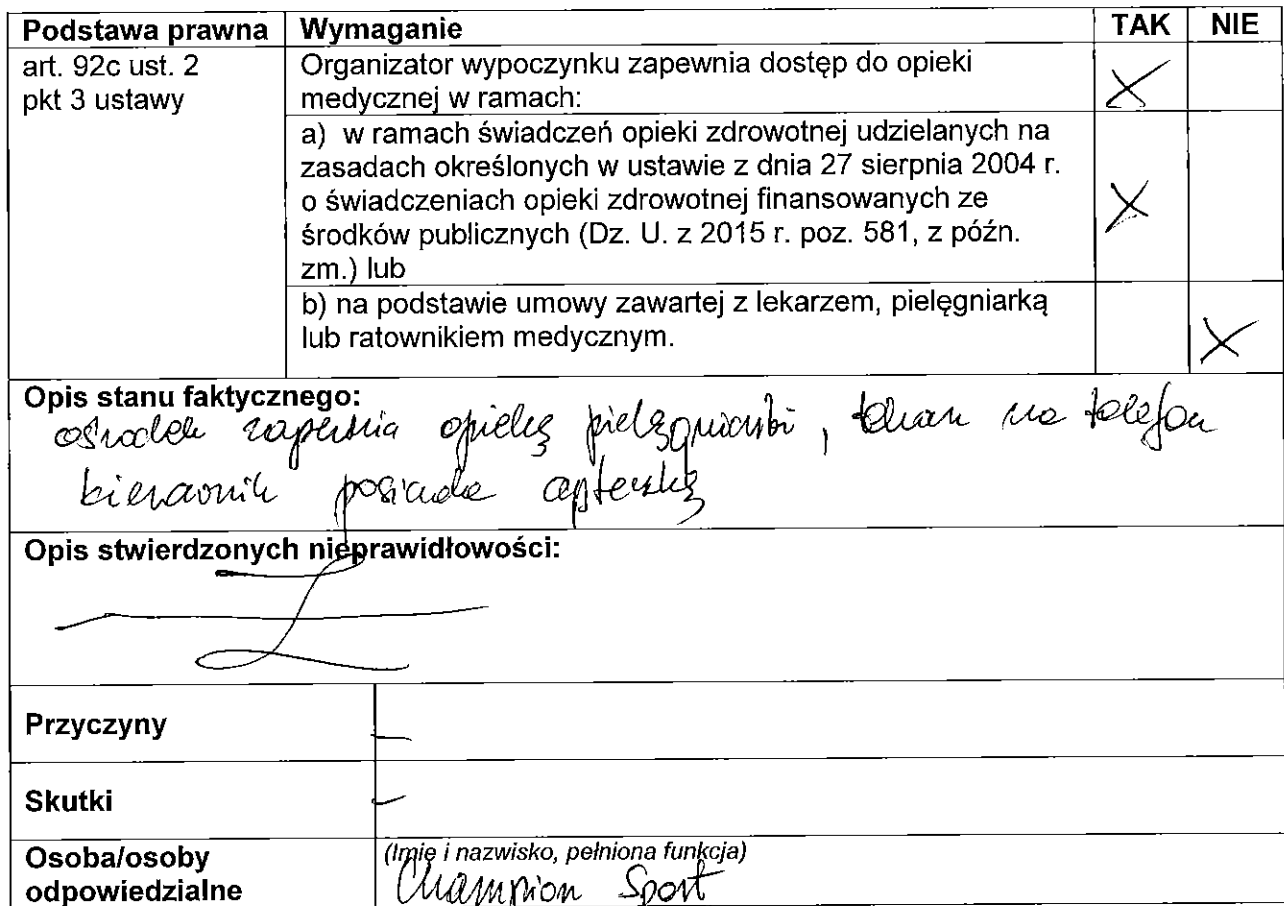 Podstawa prawna Wymaganie TAK NIE
art. 92c ust. 2
pkt 3 ustawy
Organizator wypoczynku zapewnia dostęp do opieki
medycznej w ramach: X
a) w ramach świadczeń opieki zdrowotnej udzielanych na
zasadach określonych w ustawie z dnia 27 sierpnia 2004 r.
o świadczeniach opieki zdrowotnej finansowanych ze
środków publicznych (Dz. U. z 2015 r. poz. 581, z późn.
zm.) lub X
b) na podstawie umowy zawartej z lekarzem, pielęgniarką
lub ratownikiem medycznym. X
Opis stanu faktycznego:
ośrodek zapewnia opiekę pielęgniarki, lekarz na telefon
kierownik posiada apteczkę
Opis stwierdzonych nieprawidłowości:
Przyczyny -
Skutki -
Osoba/osoby
odpowiedzialne
(Imię i nazwisko, pełniona funkcja)
Champion Sport